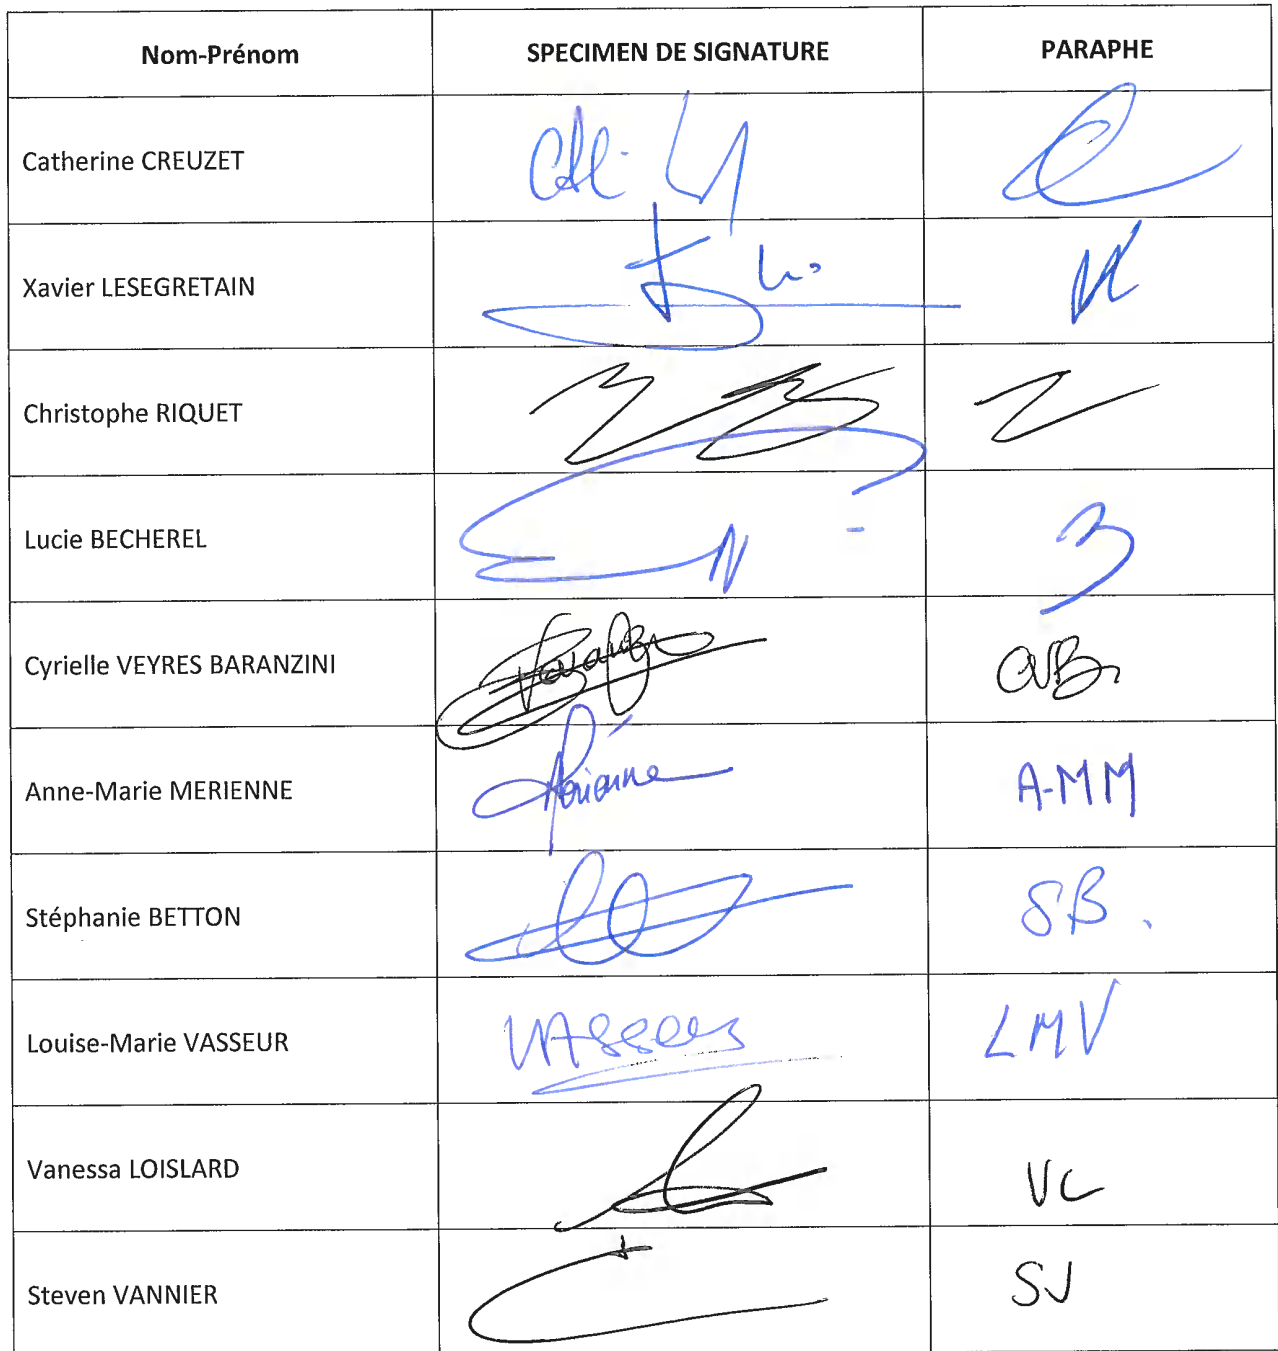 Nom-Prénom SPECIMEN DE SIGNATURE PARAPHE
Catherine CREUZET
Xavier LESEGRETAIN
Christophe RIQUET
Lucie BECHEREL
Cyrielle VEYRES BARANZINI CVB
Anne-Marie MERIENNE A-MM
Stéphanie BETTON SB.
Louise-Marie VASSEUR LMV
Vanessa LOISLARD VL
Steven VANNIER SV